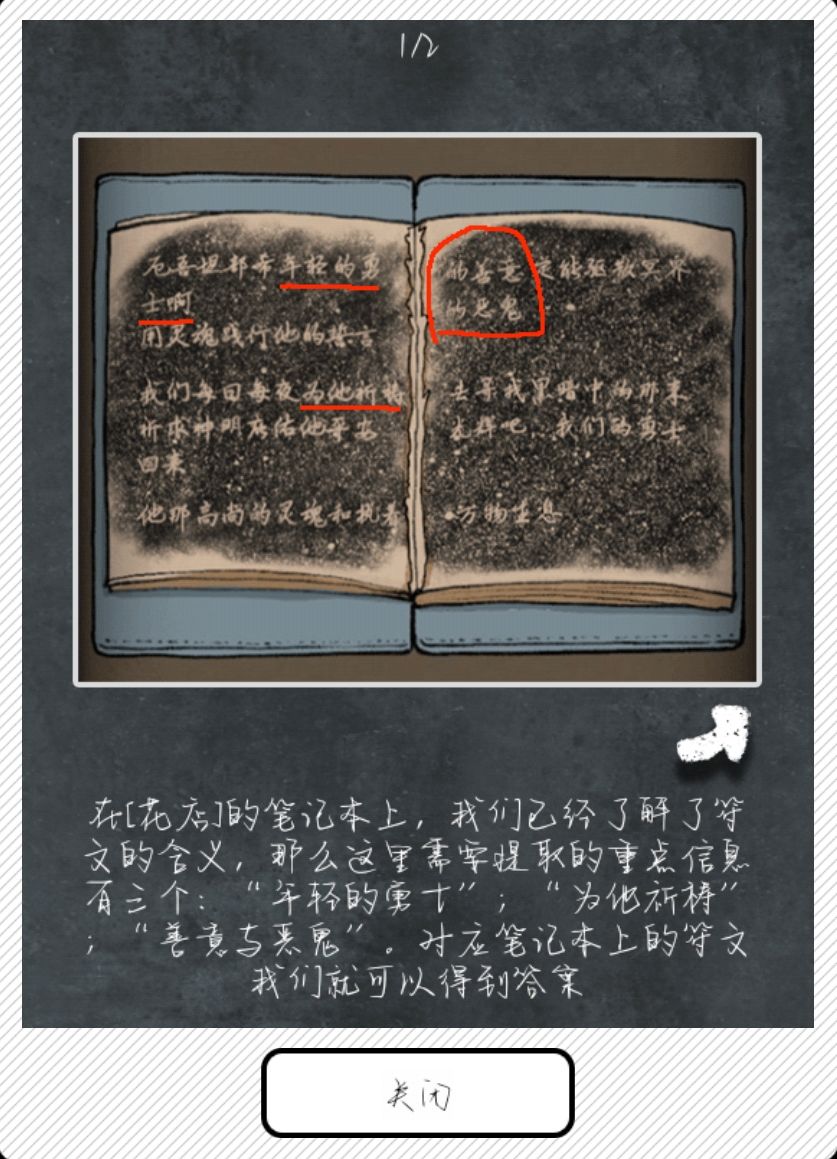 1/2
厄吾迦都帝年轻的勇
士啊
用灵魂践行他的誓言
我们每日每夜为他祈祷
祈求神明庇佑他平安
回来
他那高尚的灵魂和执着
的善意定能驱散冥界
的恶鬼
去寻找黑暗中的那束
光辉吧,我们的勇士
·万物生息
在[花店]的笔记本上,我们已经了解了符
文的含义,那么这里需要提取的重点信息
有三个:“年轻的勇士”;“为他祈祷”
;“善意与恶鬼”。对应笔记本上的符文
我们就可以得到答案
关闭